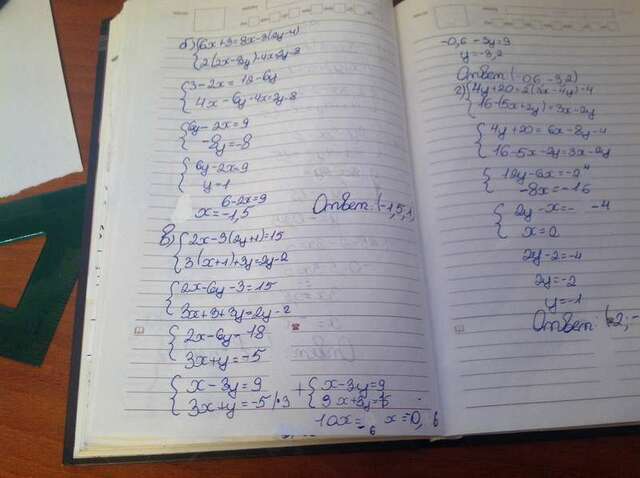 б) {6x+3=8x-3(2y-4)
{2(2x-3y)-4x=2y-8
{3-2x=12-6y
{4x-6y-4x=2y-8
{6y-2x=9
{-8y=-8
{6y-2x=9
{y=1
6-2x=9
x=-1,5
Ответ: (-1,5; 1
в) {2x-3(2y+1)=15
{3(x+1)+3y=2y-2
{2x-6y-3=15
{3x+3+3y=2y-2
{2x-6y=18
{3x+y=-5
{x-3y=9
{3x+y=-5/·3
+ {x-3y=9
10x=-6 x=-0,6
-0,6-3y=9
y=-3,2
Ответ: (-0,6; -3,2)
г) {4y+20=2(3x-4y)-4
{16-(5x+2y)=3x-2y
{4y+20=6x-8y-4
{16-5x-2y=3x-2y
-8x=-16
2y-2=-4
2y=-2
y=-1
Ответ: (2; -